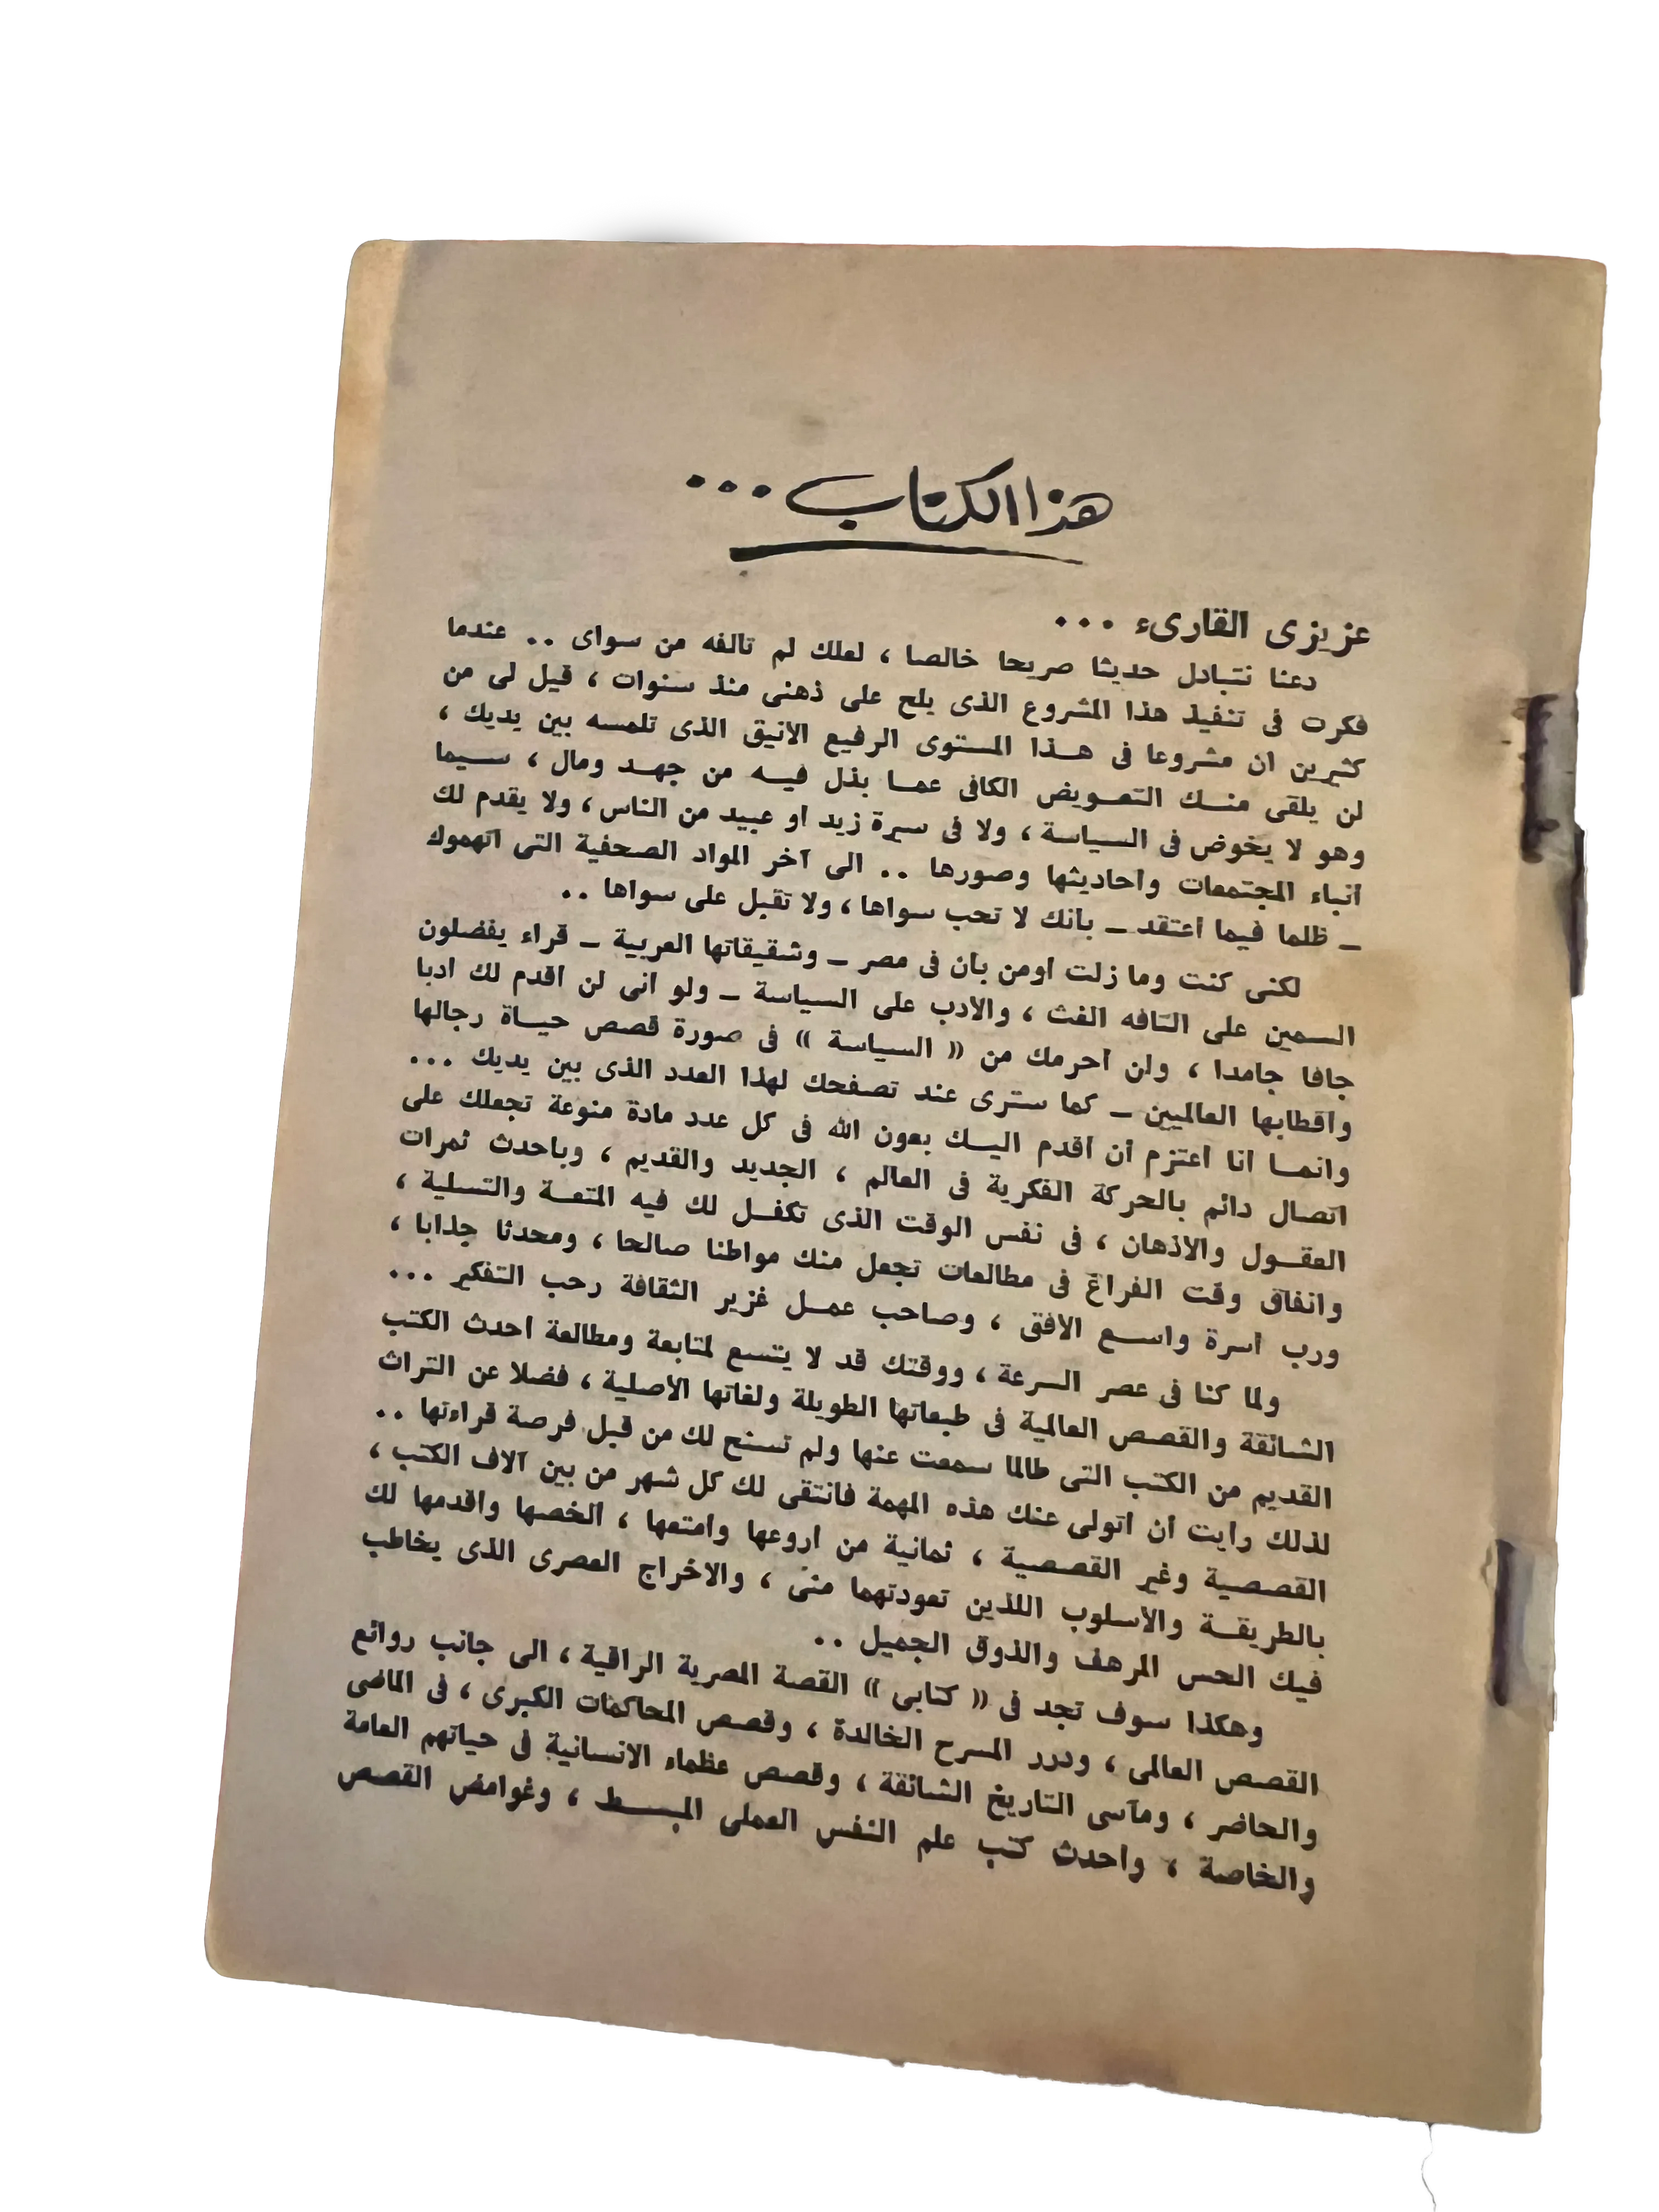 هذا الكتاب...
عزيزى القارىء ...
دعنا نتبادل حديثا صريحا خالصا ، لعلك لم تالفه من سواى .. عندما
فكرت فى تنفيذ هذا المشروع الذى يلح على ذهنى منذ سنوات ، قيل لى من
كثيرين ان مشروعا فى هذا المستوى الرفيع الانيق الذى تلمسه بين يديك ،
لن يلقى منك التعويض الكافى عما بذل فيه من جهد ومال ، سيما
وهو لا يخوض فى السياسة ، ولا فى سيرة زيد او عبيد من الناس ، ولا يقدم لك
انباء المجتمعات واحاديثها وصورها .. الى آخر المواد الصحفية التى اتهموك
ـ ظلما فيما اعتقد ـ بانك لا تحب سواها ، ولا تقبل على سواها ..
لكنى كنت وما زلت اومن بان فى مصر ـ وشقيقاتها العربية ـ قراء يفضلون
السمين على التافه الغث ، والادب على السياسة ـ ولو انى لن اقدم لك ادبا
جافا جامدا ، ولن احرمك من « السياسة » فى صورة قصص حياة رجالها
واقطابها العالميين ـ كما سترى عند تصفحك لهذا العدد الذى بين يديك ...
وانما انا اعتزم أن اقدم اليك بعون الله فى كل عدد مادة منوعة تجعلك على
اتصال دائم بالحركة الفكرية فى العالم ، الجديد والقديم ، وباحدث ثمرات
العقول والاذهان ، فى نفس الوقت الذى تكفل لك فيه المتعة والتسلية ،
وانفاق وقت الفراغ فى مطالعات تجعل منك مواطنا صالحا ، ومحدثا جذابا ،
ورب أسرة واسع الافق ، وصاحب عمل غزير الثقافة رحب التفكير ...
ولما كنا فى عصر السرعة ، ووقتك قد لا يتسع لمتابعة ومطالعة احدث الكتب
الشائقة والقصص العالمية فى طبعاتها الطويلة ولغاتها الأصلية ، فضلا عن التراث
القديم من الكتب التى طالما سمعت عنها ولم تسنح لك من قبل فرصة قراءتها ..
لذلك رايت أن اتولى عنك هذه المهمة فانتقى لك كل شهر من بين آلاف الكتب ،
القصصية وغير القصصية ، ثمانية من اروعها وامتعها ، الخصها واقدمها لك
بالطريقة والأسلوب اللذين تعودتهما منى ، والاخراج العصرى الذى يخاطب
فيك الحس المرهف والذوق الجميل ..
وهكذا سوف تجد فى « كتابى » القصة المصرية الراقية ، الى جانب روائع
القصص العالمى ، ودرر المسرح الخالدة ، وقصص المحاكمات الكبرى ، فى الماضى
والحاضر ، ومآسى التاريخ الشائقة ، وقصص عظماء الانسانية فى حياتهم العامة
والخاصة ، واحدث كتب علم النفس العملى المبسط ، وغوامض القصص